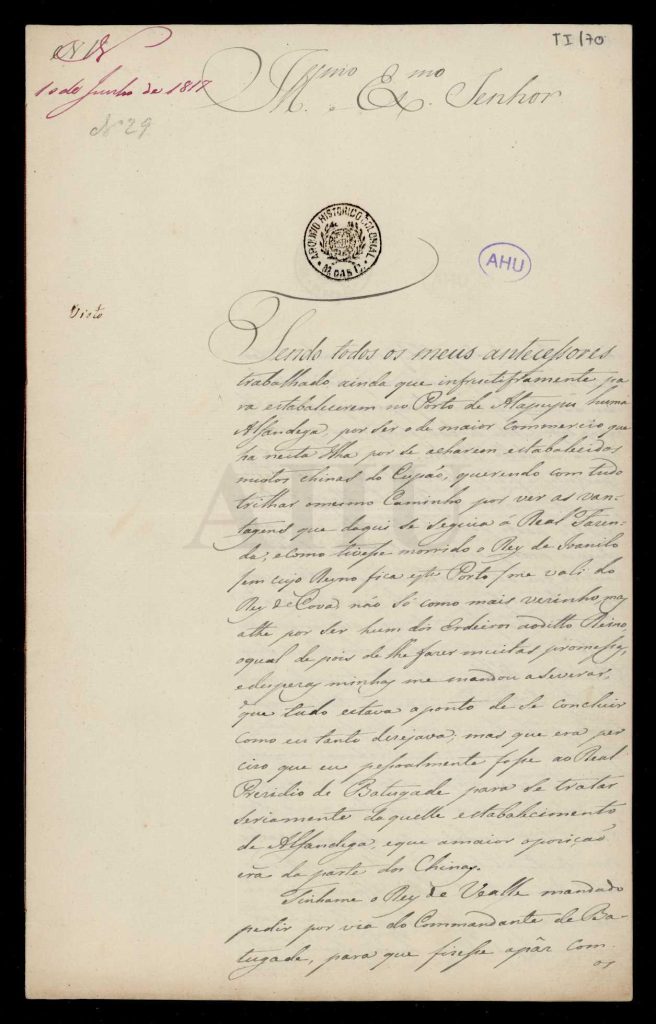 N 18
TI/70
1 o de Junho de 1817
Illmo e Exmo Senhor
Nº 29
ARQUIVO HISTORICO COLONIAL
AHU
Visto
Tendo todos os meus antecessores
trabalhado ainda que infructiferamente pa
ra estabalecerem no Porto de Atapupu huma
Alfandega, por ser o de maior Commercio que
ha nesta Ilha por se acharem estabalecidos
muitos chinas do Cupão, querendo com tudo
trilhar o mesmo Caminho por ver as van-
tagens que daqui se seguia á Real Fazen-
da; e como tivesse morrido o Rey de Juanilo
(em cujo Reyno fica este Porto) me vali do
Rey de Cová não só como mais vezinho mas
athe por ser hum dos Erdeiros aoditto Reino
oqual de pois de lhe fazer muitas promessas,
e despezas minhas me mandou a severar,
que tudo estava a ponto de se concluir
como eu tanto dezejava; mas que era per
cizo que eu pessoalmente fosse ao Real
Prezidio de Batugadé para se tratar
seriamente daquelle estabalecimento
de Alfandega, e que a maior opozição
éra da parte dos Chinas.
Tinhame o Rey de Vealle mandado
pedir por via do Commandante de Ba-
tugadé, para que fizesse a páz com
os